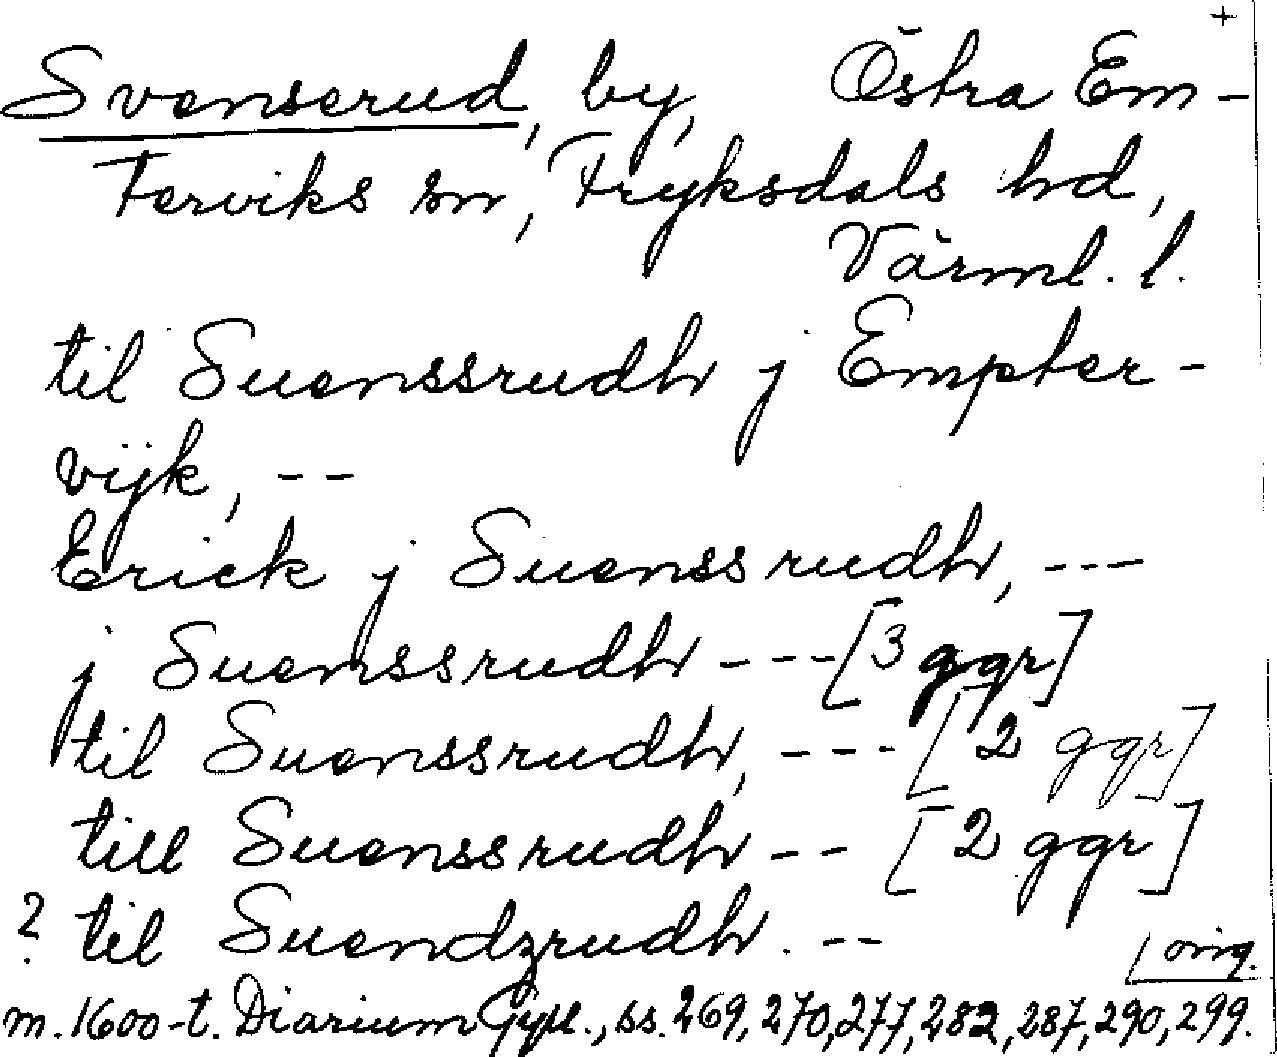 +
Svenserud, by, Östra Em-
terviks sn, Fryksdals hd,
Värml. l.
til Suenssrudh j Empter-
vijk, --
Erick j Suenssrudh, ---
j Suenssrudh --- [3 ggr]
til Suenssrudh, --- [2 ggr]
till Suenssrudh -- [2 ggr]
? til Suendzrudh. --
[orig.
m. 1600-t. Diarium Gyll., ss. 269, 270, 277, 282, 287, 290, 299.